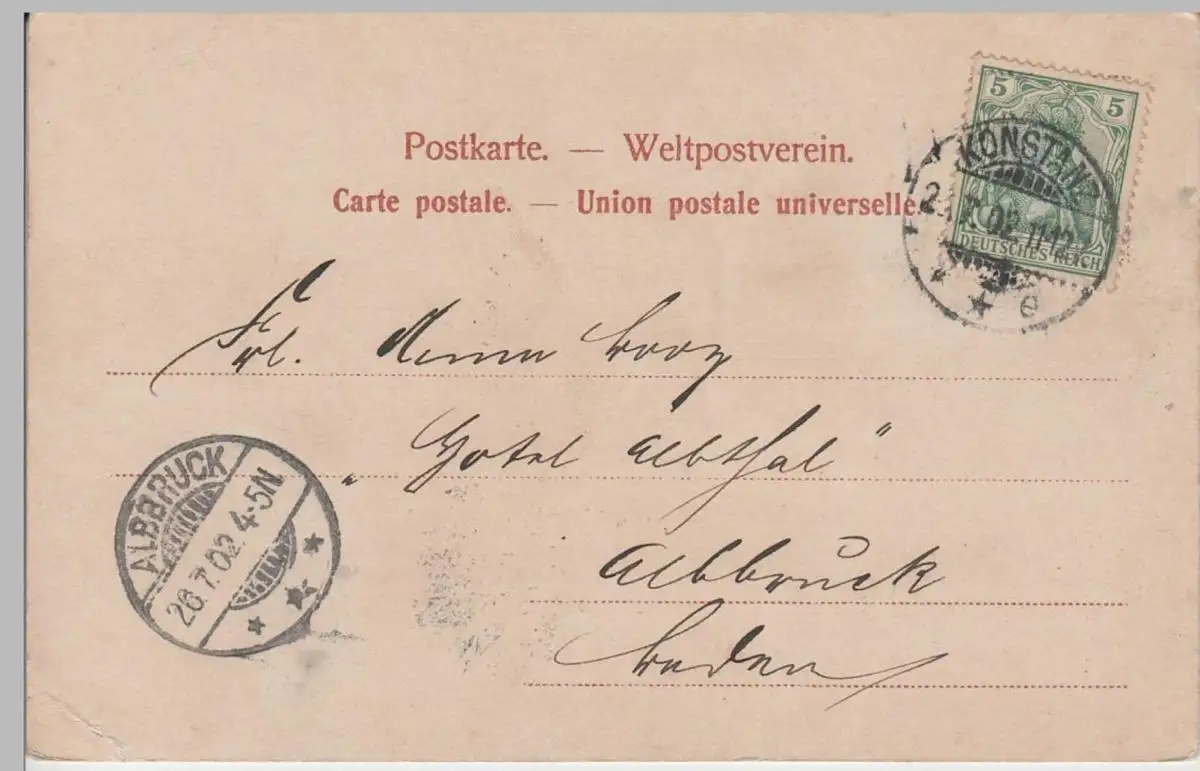 Postkarte. — Weltpostverein.
Carte postale. — Union postale universelle.
5 5
DEUTSCHES REICH
KONSTANZ
7.02.11-12
* * e
Frl.
„Hotel Albthal"
Albbruck
Baden
ALBBRUCK
26.7.02 4-5N
* * *